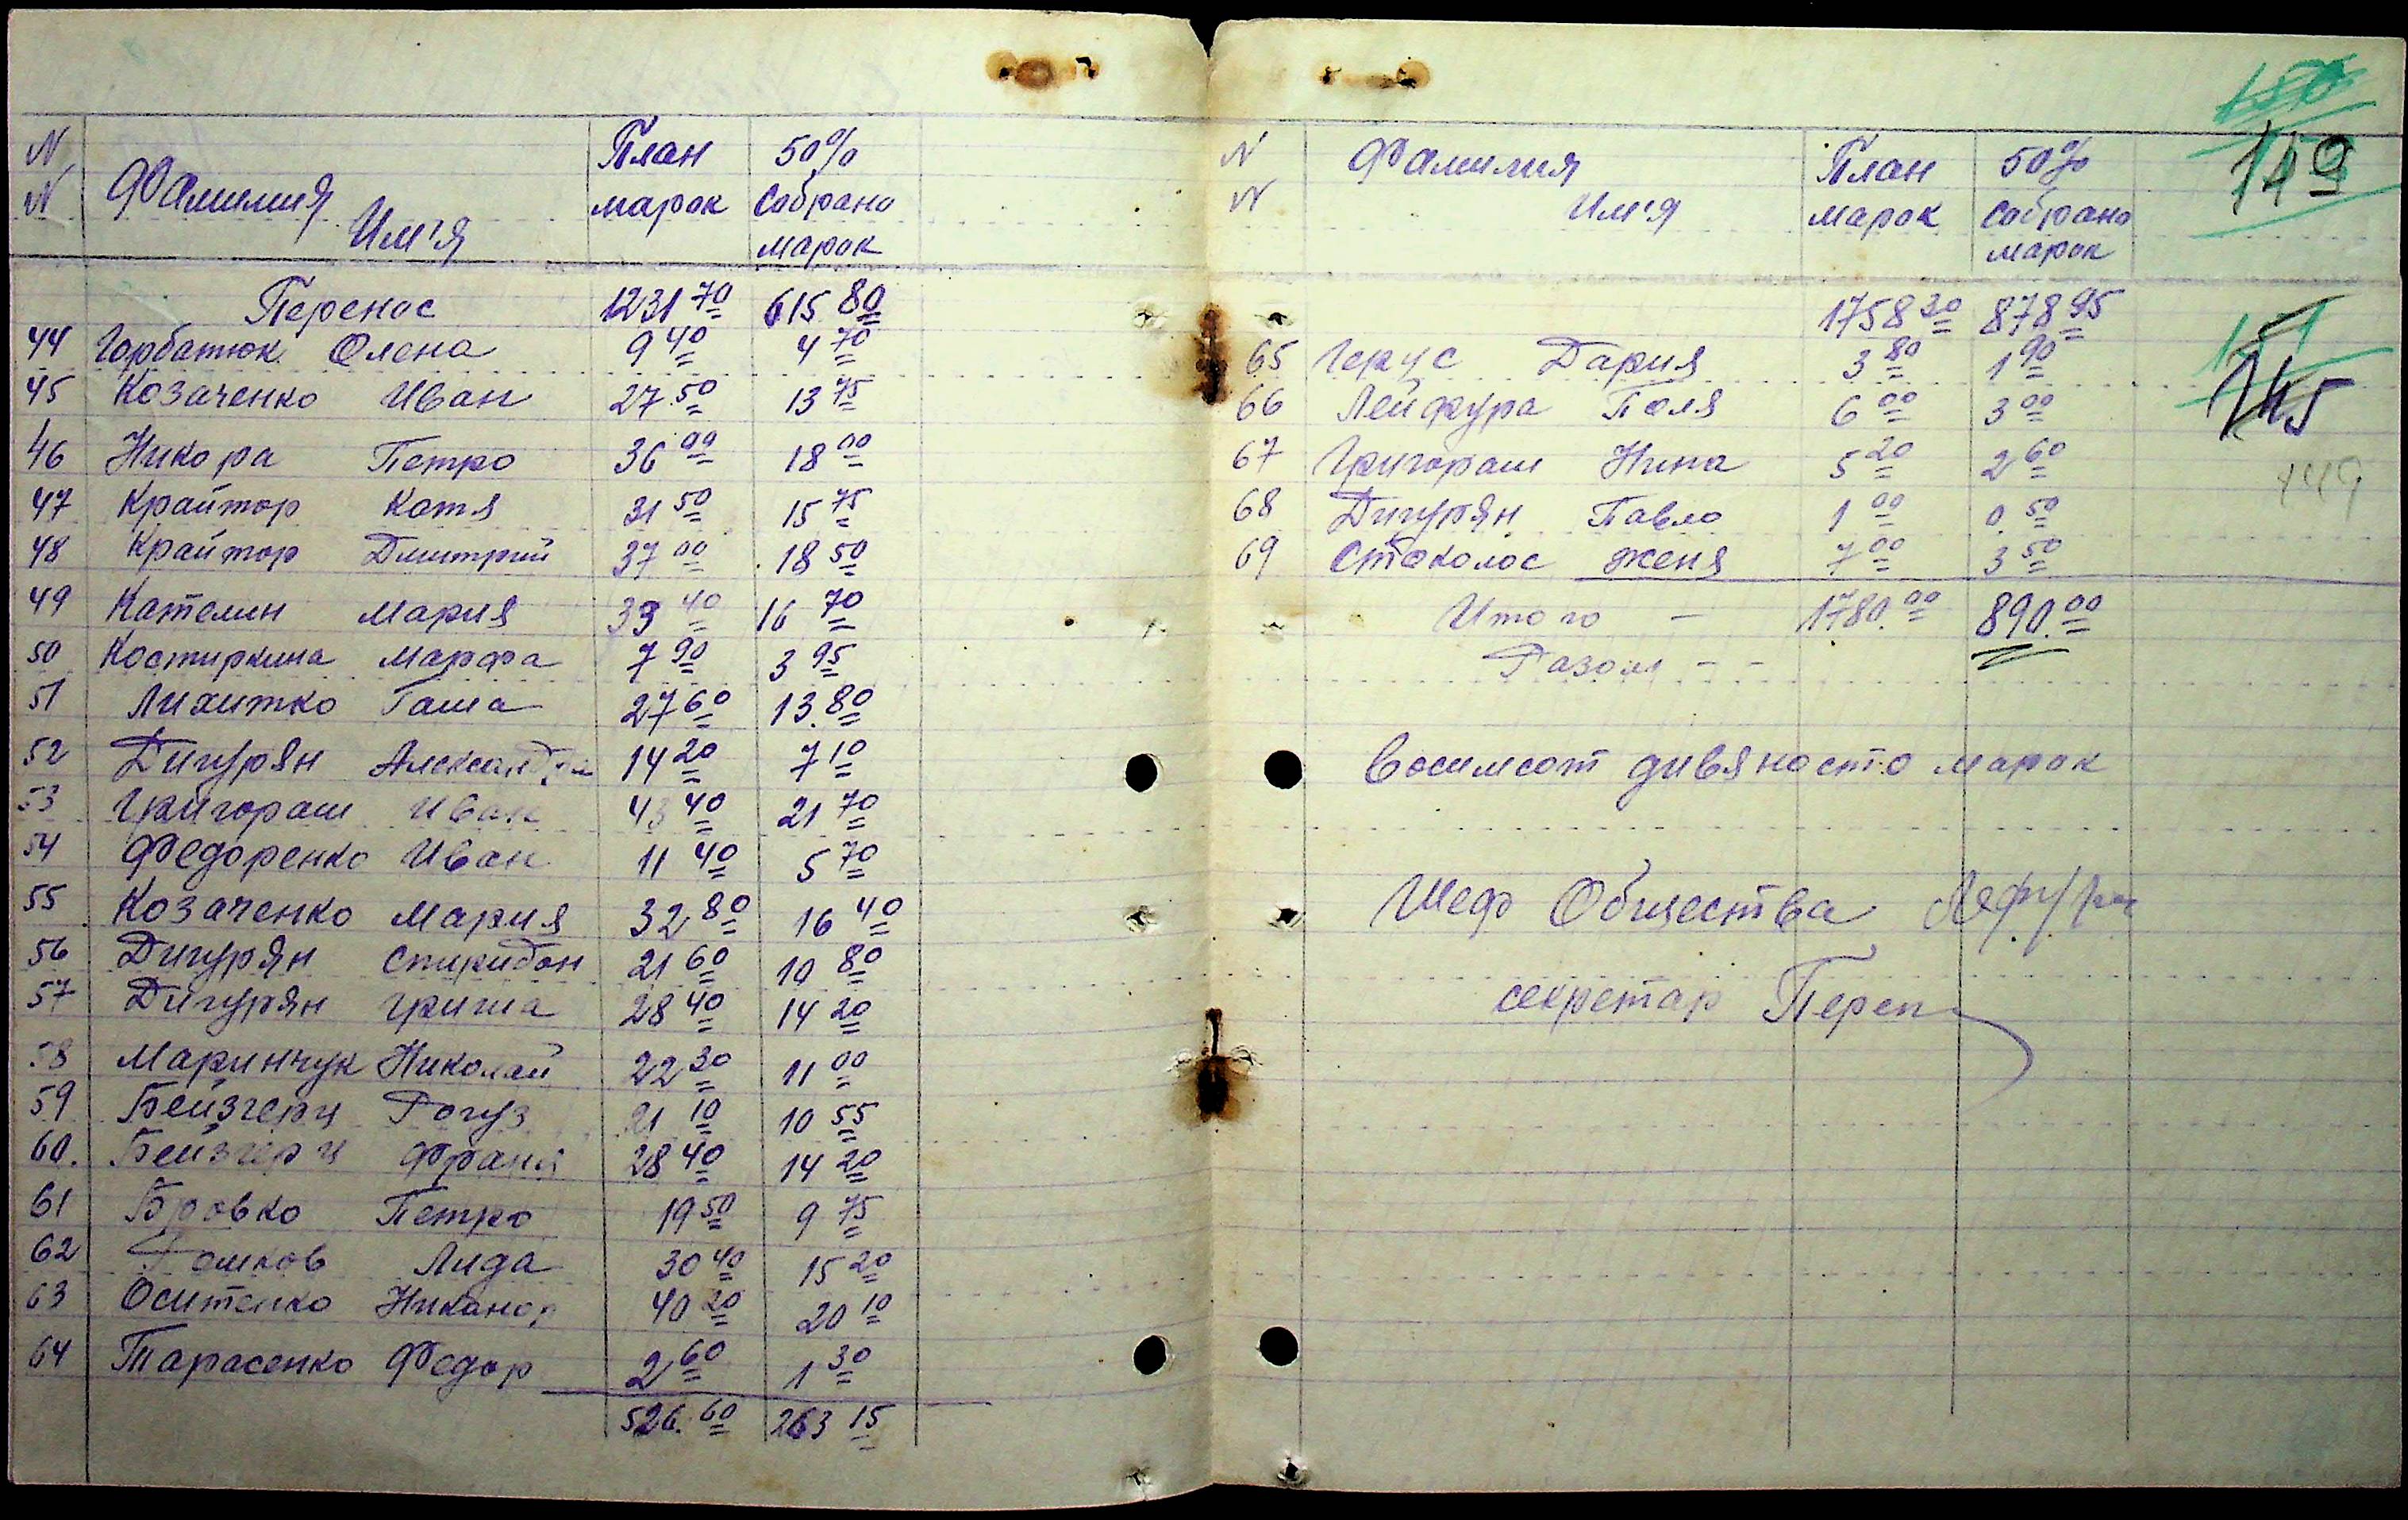 N Фамилия План 50%
N Им'я марок собрано
марок
Перенос 1231 70 615 80
44 Горбатюк Олена 9 40 4 70
45 Козаченко Иван 27.50 13 75
46 Никора Петро 36 00 18 00
47 Крайтор Катя 31 50 15 75
48 Крайтор Дмитрий 37 00 18 50
49 Кателин Мария 33 40 16 70
50 Костиркина Марфа 7 90 3 95
51 Лихитко Гаша 27 60 13.80
52 Дигурян 14 20 7 10
53 Григораш Иван 43 40 21 70
54 Федоренко Иван 11 40 5 70
55 Козаченко Мария 32 80 16 40
56 Дигурян Спиридон 21 60 10 80
57 Дигурян Гриша 28 40 14 20
58 Маринчук Николай 22 30 11 00
59 Бейзгерц 21 10 10 55
60. Бейзгерц Франя 28 40 14 20
61 Бровко Петро 19 50 9 75
62 Лида 30 40 15 20
63 Оситенко Никанор 40 20 20 10
64 Тарасенко Федор 2 60 1 30
526.60 263 15
149
N Фамилия План 50%
N Им'я марок собрано
марок
1758 30 878 95
65 Герус Дария 3 80 1 90
145
66 Лейфура Поля 6 00 3 00
67 Григораш Нина 5 20 2 60
149
68 Дигурян Павло 1 00 0.50
69 Стоколос Женя 7 00 3 50
Итого — 1780.00 890.00
Разом - -
Восимсот дивяносто марок
Шеф Общества
секретар